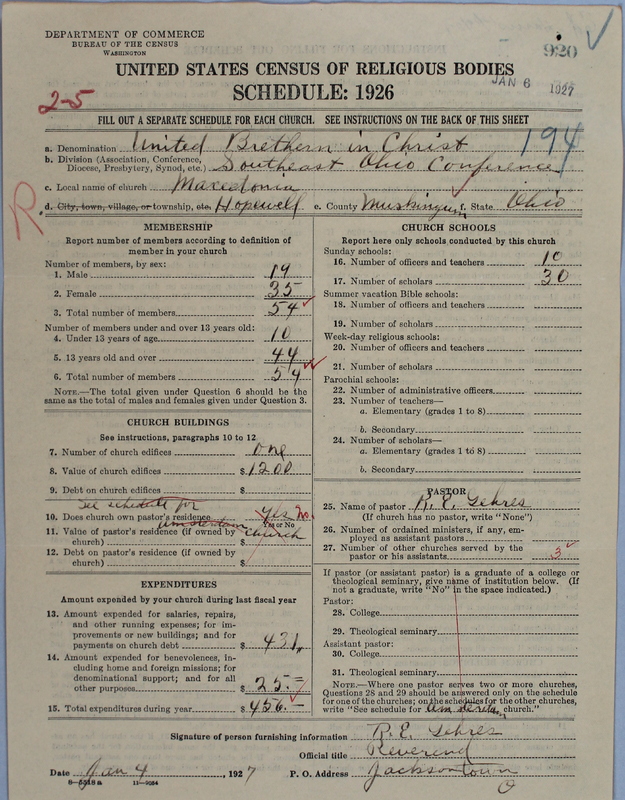 DEPARTMENT OF COMMERCE
BUREAU OF THE CENSUS
WASHINGTON
920
UNITED STATES CENSUS OF RELIGIOUS BODIES
JAN 6 1927
SCHEDULE: 1926
2-5
FILL OUT A SEPARATE SCHEDULE FOR EACH CHURCH. SEE INSTRUCTIONS ON THE BACK OF THIS SHEET
194
a. Denomination United Brethern in Christ
b. Division (Association, Conference, Diocese, Presbytery, Synod, etc.) Southeast Ohio Conference
c. Local name of church Macedonia
R
d. City, town, village, or township, etc. Hopewell e. County Muskingum f. State Ohio
MEMBERSHIP
Report number of members according to definition of
member in your church
Number of members, by sex:
1. Male 19
2. Female 35
3. Total number of members 54
Number of members under and over 13 years old:
4. Under 13 years of age 10
5. 13 years old and over 44
6. Total number of members 54
NOTE.—The total given under Question 6 should be
same as the total of males and females given under Question 3.
CHURCH BUILDINGS
See instructions, paragraphs 10 to 12
7. Number of church edifices one
8. Value of church edifices $1200
9. Debt on church edifices $
See schedule for
10. Does church own pastor's residence Yes No
Yes or No
Amsterdam church
11. Value of pastor's residence (if owned by
church) $
12. Debt on pastor's residence (if owned by
church) $
EXPENDITURES
Amount expended by your church during last fiscal year
13. Amount expended for salaries, repairs,
and other running expenses; for im-
provements or new buildings; and for
payments on church debt $ 431
14. Amount expended for benevolences, in-
cluding home and foreign missions; for
denominational support; and for all
other purposes $ 25.
15. Total expenditures during year $ 456.
CHURCH SCHOOLS
Report here only schools conducted by this church
Sunday schools:
16. Number of officers and teachers 10
17. Number of scholars 30
Summer vacation Bible schools:
18. Number of officers and teachers
19. Number of scholars
Week-day religious schools:
20. Number of officers and teachers
21. Number of scholars
Parochial schools:
22. Number of administrative officers
23. Number of teachers—
a. Elementary (grades 1 to 8)
b. Secondary
24. Number of scholars—
a. Elementary (grades 1 to 8)
b. Secondary
PASTOR
25. Name of pastor R. E. Gehres
(If church has no pastor, write "None")
26. Number of ordained ministers, if any, em-
ployed as assistant pastors
27. Number of other churches served by the
pastor or his assistants 3
If pastor (or assistant pastor) is a graduate of a college or
theological seminary, give name of institution below. (If
not a graduate, write "No" in the space indicated.)
Pastor:
28. College
29. Theological seminary
Assistant pastor:
30. College
31. Theological seminary
NOTE.—Where one pastor serves two or more churches,
Questions 28 and 29 should be answered only on the schedule
for one of the churches; on the schedules for the other churches,
write "See schedule for Amsterdam church."
Signature of person furnishing information R. E. Gehres
Official title Reverend
Date Jan 4, 1927 P. O. Address Jacksontown
O
8—5518 a 11—9084